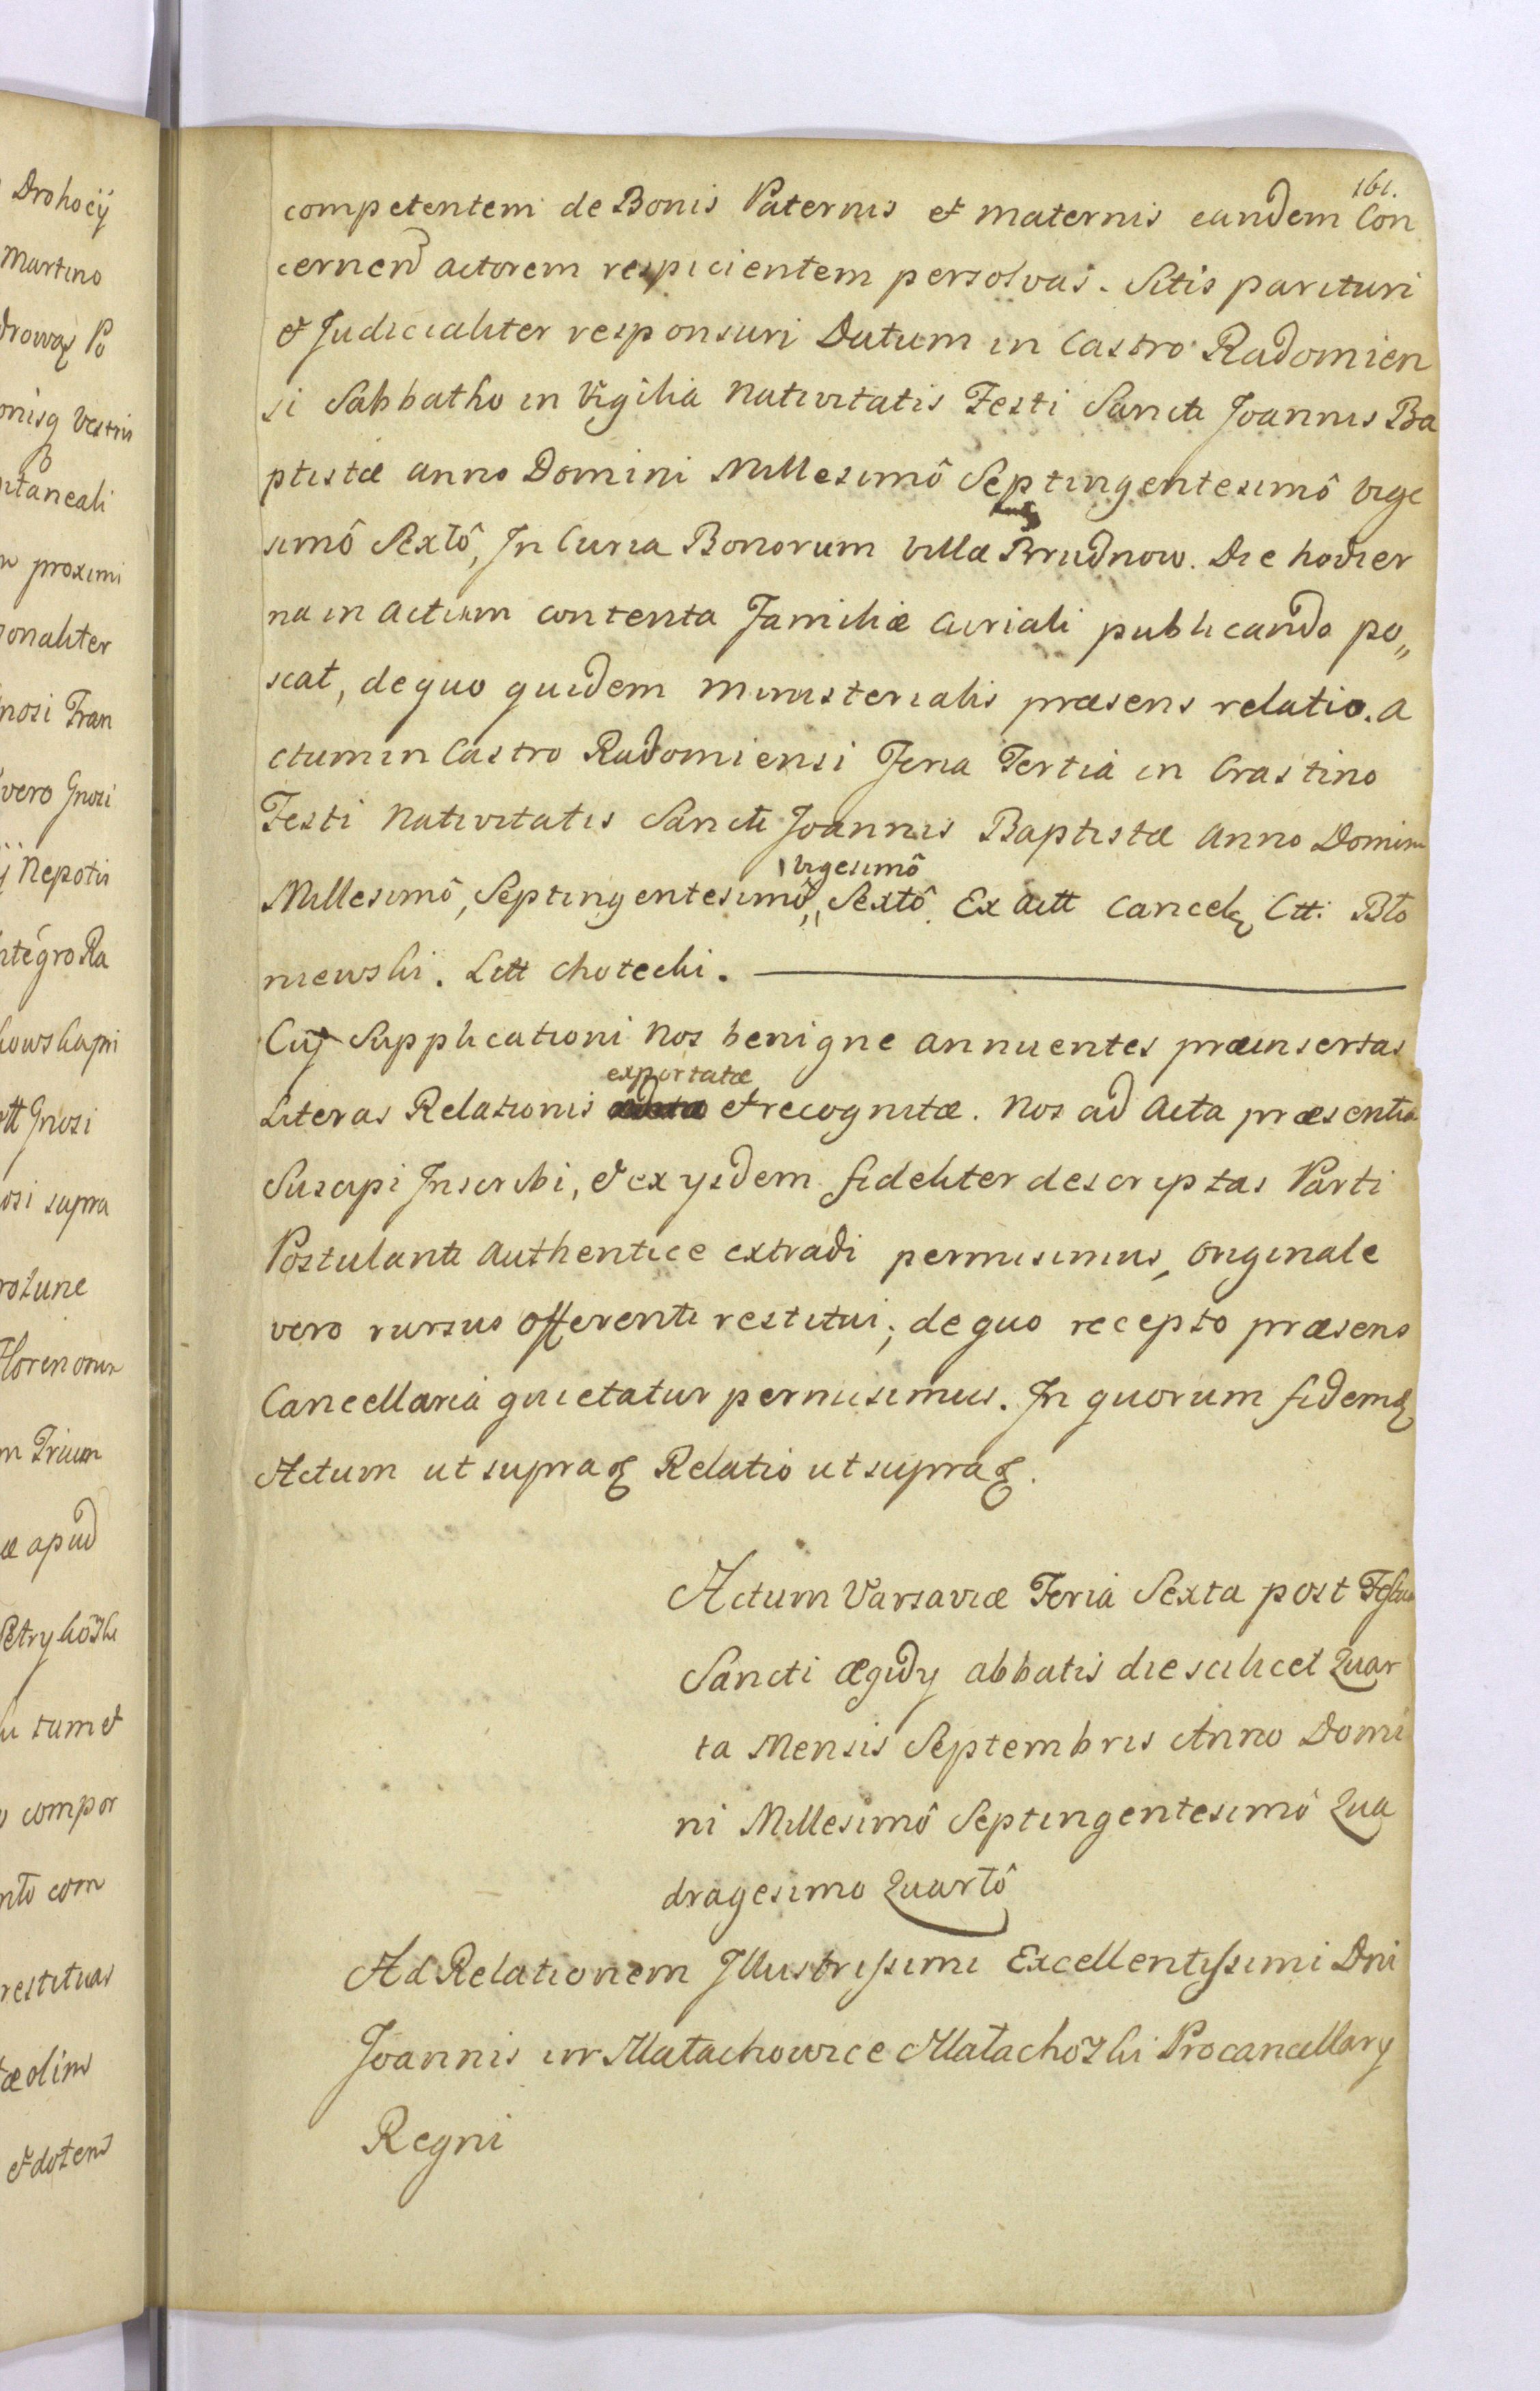 161.
competentem de Bonis Paternis et maternis eandem Con
cernend actorem respicientem persolvas. Sitis parituri
et Judicialiter responsuri Datum in Castro Radomien
si Sabbatho in Vigilia Nativitatis Festi Sancti Joannis Ba
ptistæ anno Domini Millesimô Septingentesimô vige
simô Sextô, In Curia Bonorum villæ Brudnow. Die hodier
na in actum contenta Familiæ Curiali publicando po„
scat, de quo quidem ministerialis præsens relatio. a
ctum in Castro Radomiensi Feria Tertia in Crastino
Festi Nativitatis Sancti Joannis Baptistæ anno Domini
vigesimô
Millesimô, Septingentesimô,, Sextô. Ex Actt Cancel Ctt: Bło
niewski. Lett Chotecki.
Cuj Supplicationi Nos benigne annuentes præinsertas
exportatæ
Literas Relationis et recognitæ. Nos ad Acta præsentia
Suscipi Inscribi, et ex ysdem fideliter descriptas Parti
Postulanti Authentice extradi permisimus, originale
vero rursus offerenti restitui; de quo recepto præsens
Cancellaria quietatur permisimus. In quorum fidem
Actum ut supra Relatio ut supra.
Actum Varsaviæ Feria Sexta post Festum
Sancti Ægidy abbatis die scilicet Quar
ta Mensis Septembris Anno Domi
ni Millesimô Septingentesimô Qua
dragesimo Quartô
Ad Relationem Illustrissimi Excellentissimi Dni
Joannis in Małachowice Małachowski Procancellary
Regni
Drohocij
Martino
vestris
itaneali
proximi
onaliter
nosi Fran
vero Gnosi
Nepotis
ntegro Ra
Gnosi
osi supra
Florenorum
Trium
æ apud
tum et
compor
com
restituas
olim